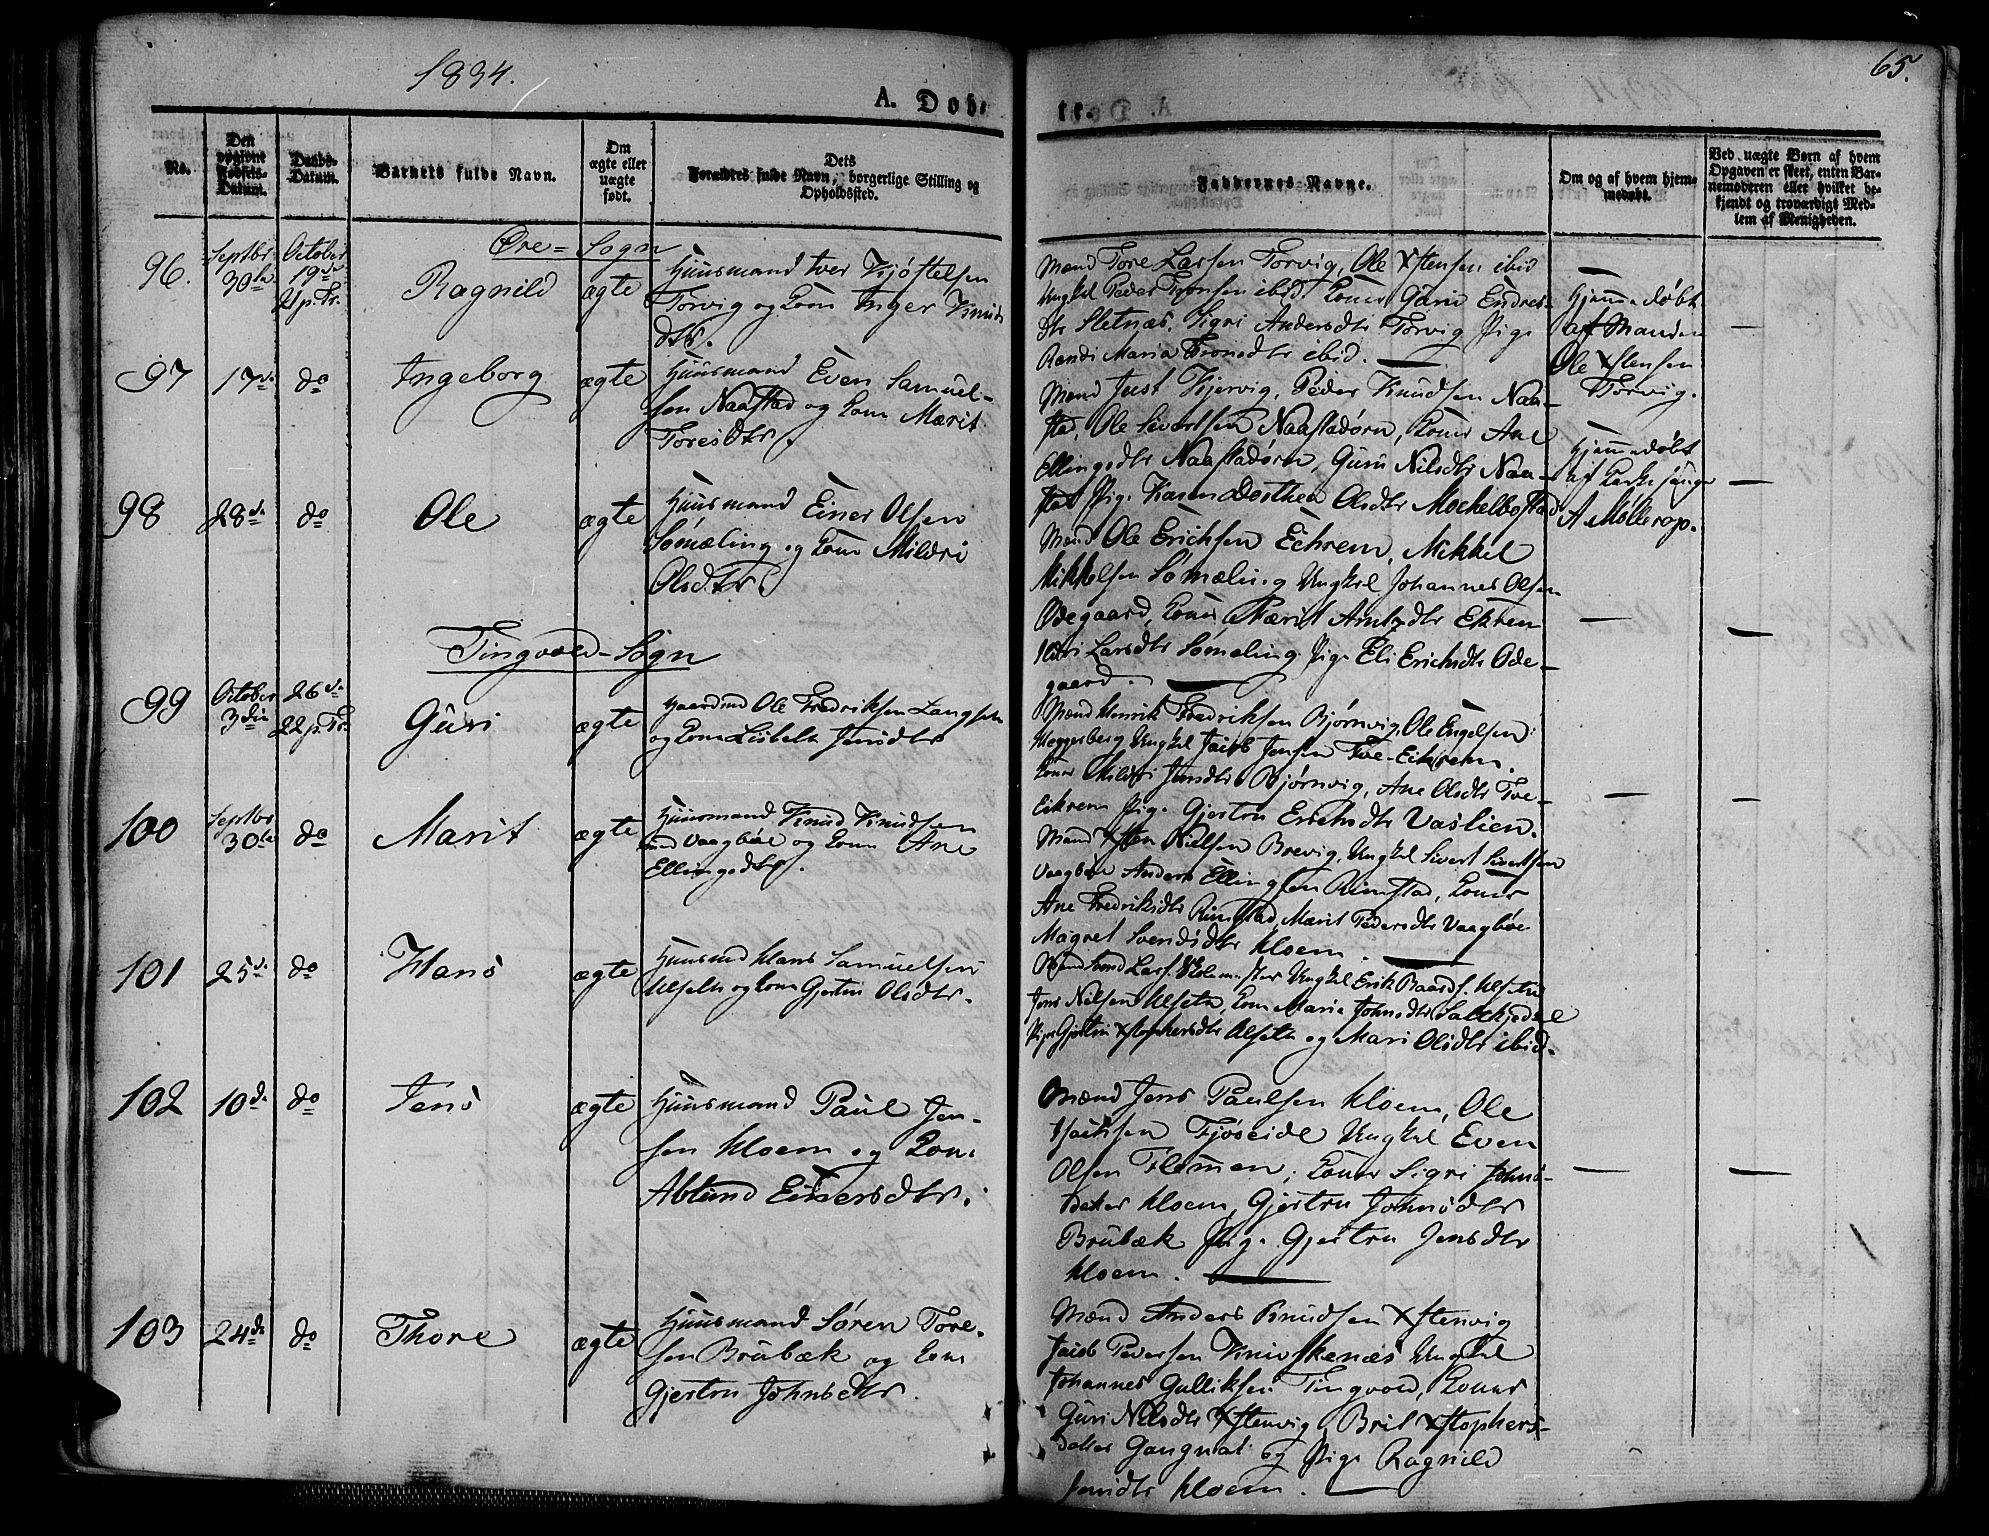 1834.
65.
A. Døb-
te.
No.
Den
opgivne
Fødsels-
Datum.
Daabs-
Datum.
Barnets fulde Navn.
Om
ægte eller
uægte
født.
Dets
Forældres fulde Navn, borgerlige Stilling og
Opholdssted.
Faddernes Navne.
Om og af hvem hjem-
medøbt.
Ved uægte Børn af hvem
Opgaven er skeet, enten Bar-
nemoderen eller hvilket be-
kjendt og troværdigt Med-
lem af Menigheden.
Øre-Sogn
96.
Septbr
30te
October
19de
21 p. Tr.
Ragnild
ægte
Huusmand Iver Kjøstelsen
Torvig og Kone Inger Knuds
dtr.
Mænd Tore Larsen Torvig, Ole Xstensen ibid
Ungkel Peder Tronsen ibid. Koner Guru Endres-
dtr Sletnæs, Sigri Andersdtr Torvig Pige
Randi Maria Tronsdtr ibid.
Hjemmedøbt
af Manden
Ole Xstensen
Torvig.
97
17de
do
Ingeborg
ægte
Huusmand Even Samuel-
sen Naastad og Kone Marit
Toresdtr.
Mænd Just Kjervig, Peder Knudsen Naa-
stad, Ole Sivertsen Naastadørn, Koner Ane
Ellingsdtr Naastadørn, Guru Nilsdtr Naa-
stad Pige Karen Dorthea Olsdtr Mockelbostad
Hjemmedøbt
af Kirkesanger
A Møllerop.
98
28de
do
Ole
ægte
Huusmand Einer Olsen
Sømæling og Kone Mildri
Olsdtr.
Mænd Ole Erichsen Echrem, Mikkel
Mikkelsen Sømæling Ungkel Johannes Olsen
Ødegaard, Koner Marit Arntsdtr Ekrem
Larsdtr Sømeling Pige Eli Erichsdtr Øde-
gaard.
Tingvold-Sogn
99
October
3die
26de
22 p. Tr.
Guri
ægte
Gaardmd Ole Fredriksen Langset
og Kone Lisbeth Jensdtr
Mænd Henrik Fredriksen Bjørnvig, Ole Engelsen
Heggerberg Ungkel Jacob Jensen Tve-Eikrem.
Koner Mildri Jensdtr Bjørnvig, Ane Olsdtr Tve-
Eikrem Pige Gjertru Erichsdtr Vaslien.
100
Septbr
30te
do
Marit
ægte
Huusmand Knud Knudsen
Vaagbøe og Kone Ane
Ellingsdtr.
Mænd Xsten Nielsen Brevig, Ungkel Sivert Sivertsen
Vaagbøe Anders Ellingsen Rimstad, Koner
Ane Fredriksdtr Rimstad, Marit Pedersdtr Vaagbøe
Magret Svendsdtr Kloem.
101
25de
do
Hans
ægte
Huusmd Hans Samuelsen
Ulseth og Kone Gjertru Olsdtr.
Mænd Svend Lars. Skolemester Ungkel Erik Baards. Ulseth
Jens Nilsen Ulseth, Kone Marie Johnsdtr Saltkjedal
Pige Gjertru Xstophersdtr Ulseth og Mari Olsdtr ibid.
102
10de
do
Jens
ægte
Huusmand Paul Jen-
sen Kloem og Kone
Ablund Einersdtr.
Mænd Jens Paulsen Kloem, Ole
Isachsen Fjøseide Ungkel Even
Olsen Flemmen, Koner Sigri Johns-
datter Kloem, Gjertru Johnsdtr
Brubæk Pige Gjertru Jensdtr
Kloem.
103
24de
do
Thore
ægte
Huusmand Søren Tore-
sen Brubæk og Kone
Gjertru Johnsdtr.
Mænd Anders Knudsen Xstenvig
Jacob Pedersen Knivskenæs Ungkel
Johannes Gulliksen Tingvold, Koner
Guri Nilsdtr Xstenvig, Brit Xstophers-
datter Gangnat og Pige Ragnild
Jensdtr Kloem.